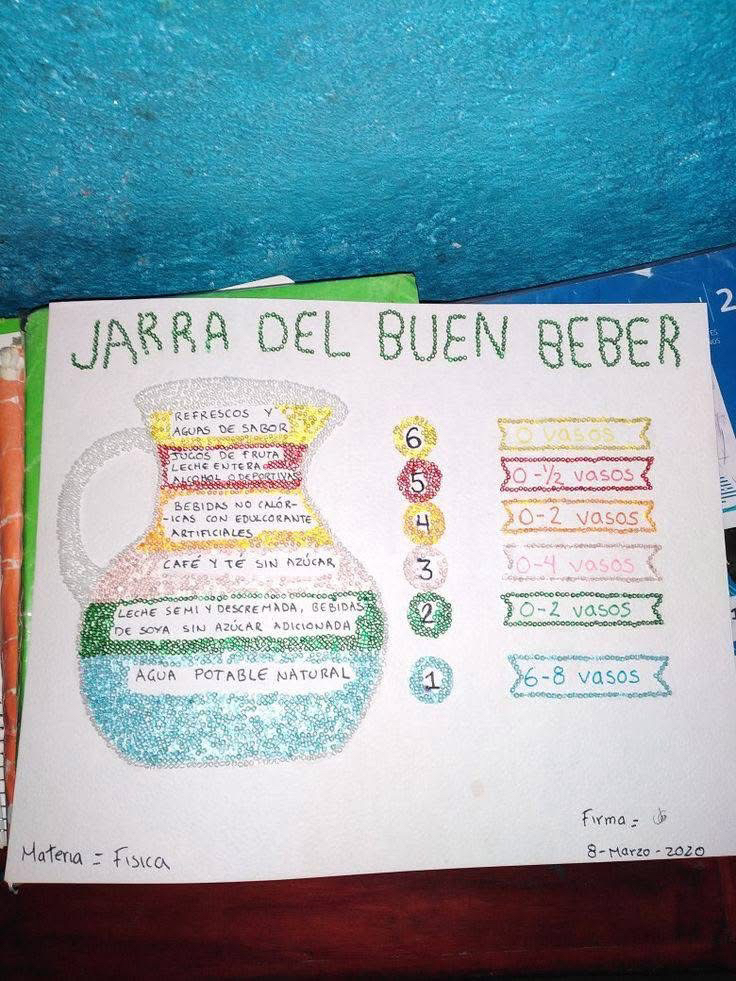 JARRA DEL BUEN BEBER
REFRESCOS Y
AGUAS DE SABOR
6
0 vasos
JUGOS DE FRUTA
LECHE ENTERA
ALCOHOL O DEPORTIVAS
5
0-½ vasos
BEBIDAS NO CALÓR-
-ICAS CON EDULCORANTE
ARTIFICIALES
4
0-2 vasos
CAFÉ Y TÉ SIN AZÚCAR
3
0-4 vasos
LECHE SEMI Y DESCREMADA, BEBIDAS
DE SOYA SIN AZÚCAR ADICIONADA
2
0-2 vasos
AGUA POTABLE NATURAL
1
6-8 vasos
Firma =
Materia = Física
8-Marzo-2020
2